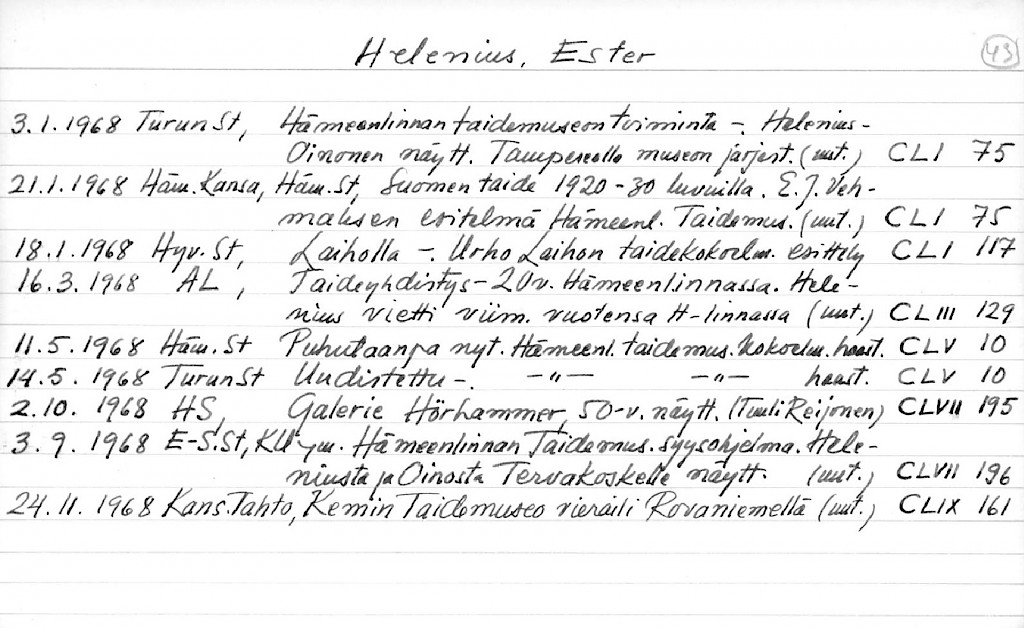 Helenius, Ester 43
3.1.1968 Turun St, Hämeenlinnan taidemuseon toiminta -. Helenius-
Oinonen näytt. Tampereella museon järjest. (uut.) CLI 75
21.1.1968 Häm. Kansa, Häm. St, Suomen taide 1920-30 luvuilla. E.J. Veh-
maksen esitelmä Hämeenl. Taidemus. (uut.) CLI 75
18.1.1968 Hyv. St, Laiholla -. Urho Laihon taidekokoelm. esittely CLI 117
16.3.1968 AL, Taideyhdistys - 20v. Hämeenlinnassa. Hele-
nius vietti viim. vuotensa H-linnassa (uut.) CLIII 129
11.5.1968 Häm. St Puhutaanpa nyt. Hämeenl. taidemus. kokoelm. haast. CLV 10
14.5.1968 Turun St Uudistettu -. -"- -"- haast. CLV 10
2.10.1968 HS, Galerie Hörhammer, 50-v. näytt. (Tuuli Reijonen) CLVII 195
3.9.1968 E-S.St, KU ym. Hämeenlinnan Taidemus. syysohjelma. Hele-
niusta ja Oinosta Tervakoskelle näytt. (uut.) CLVII 196
24.11.1968 Kans. Tahto, Kemin Taidemuseo vieraili Rovaniemellä (uut.) CLIX 161